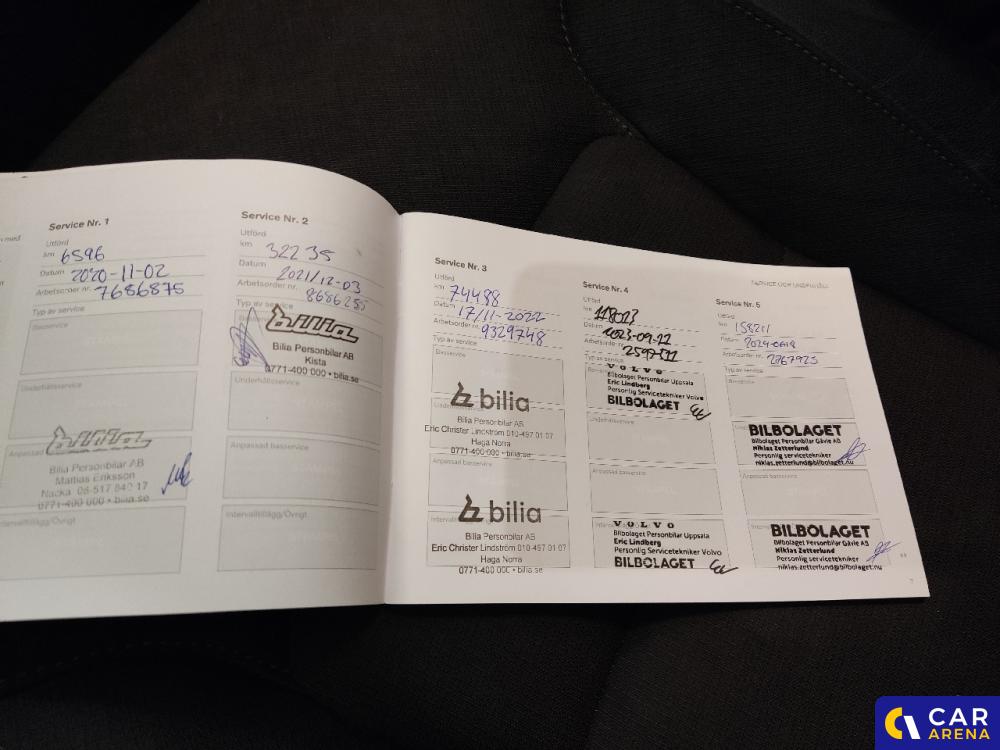 Service Nr. 1
Utförd
km 6596
Datum 2020-11-02
Arbetsorder nr. 7686875
Typ av service
Basservice
Underhållsservice
Anpassad
bilia
Bilia Personbilar AB
Mattias Eriksson
Nacka 08-517 840 17
0771-400 000 • bilia.se
Intervalltillägg/Övrigt
Service Nr. 2
Utförd
km 32235
Datum 2021/12-03
Arbetsorder nr. 8686285
Typ av service
bilia
Bilia Personbilar AB
Kista
0771-400 000 • bilia.se
Underhållsservice
Anpassad basservice
Intervalltillägg/Övrigt
Service Nr. 3
Utförd
km 74488
Datum 17/11-2022
Arbetsorder nr. 9329748
Typ av service
Basservice
bilia
Bilia Personbilar AB
Eric Christer Lindström 010-497 01 07
Haga Norra
0771-400 000 • bilia.se
Anpassad basservice
bilia
Bilia Personbilar AB
Eric Christer Lindström 010-497 01 07
Haga Norra
0771-400 000 • bilia.se
Service Nr. 4
Utförd
km 118023
Datum
Arbetsorder nr.
Typ av service
VOLVO
Bilbolaget Personbilar Uppsala
Eric Lindberg
Personlig Servicetekniker Volvo
BILBOLAGET
Underhållsservice
Anpassad basservice
VOLVO
Bilbolaget Personbilar Uppsala
Eric Lindberg
Personlig Servicetekniker Volvo
BILBOLAGET
Service Nr. 5
Utförd
km 158211
Datum
Arbetsorder nr. 2767925
Typ av service
Basservice
BILBOLAGET
Bilbolaget Personbilar Gävle AB
Niklas Zetterlund
Personlig servicetekniker
niklas.zetterlund@bilbolaget.nu
Anpassad basservice
BILBOLAGET
Bilbolaget Personbilar Gävle AB
Niklas Zetterlund
Personlig servicetekniker
niklas.zetterlund@bilbolaget.nu
7
CAR
ARENA